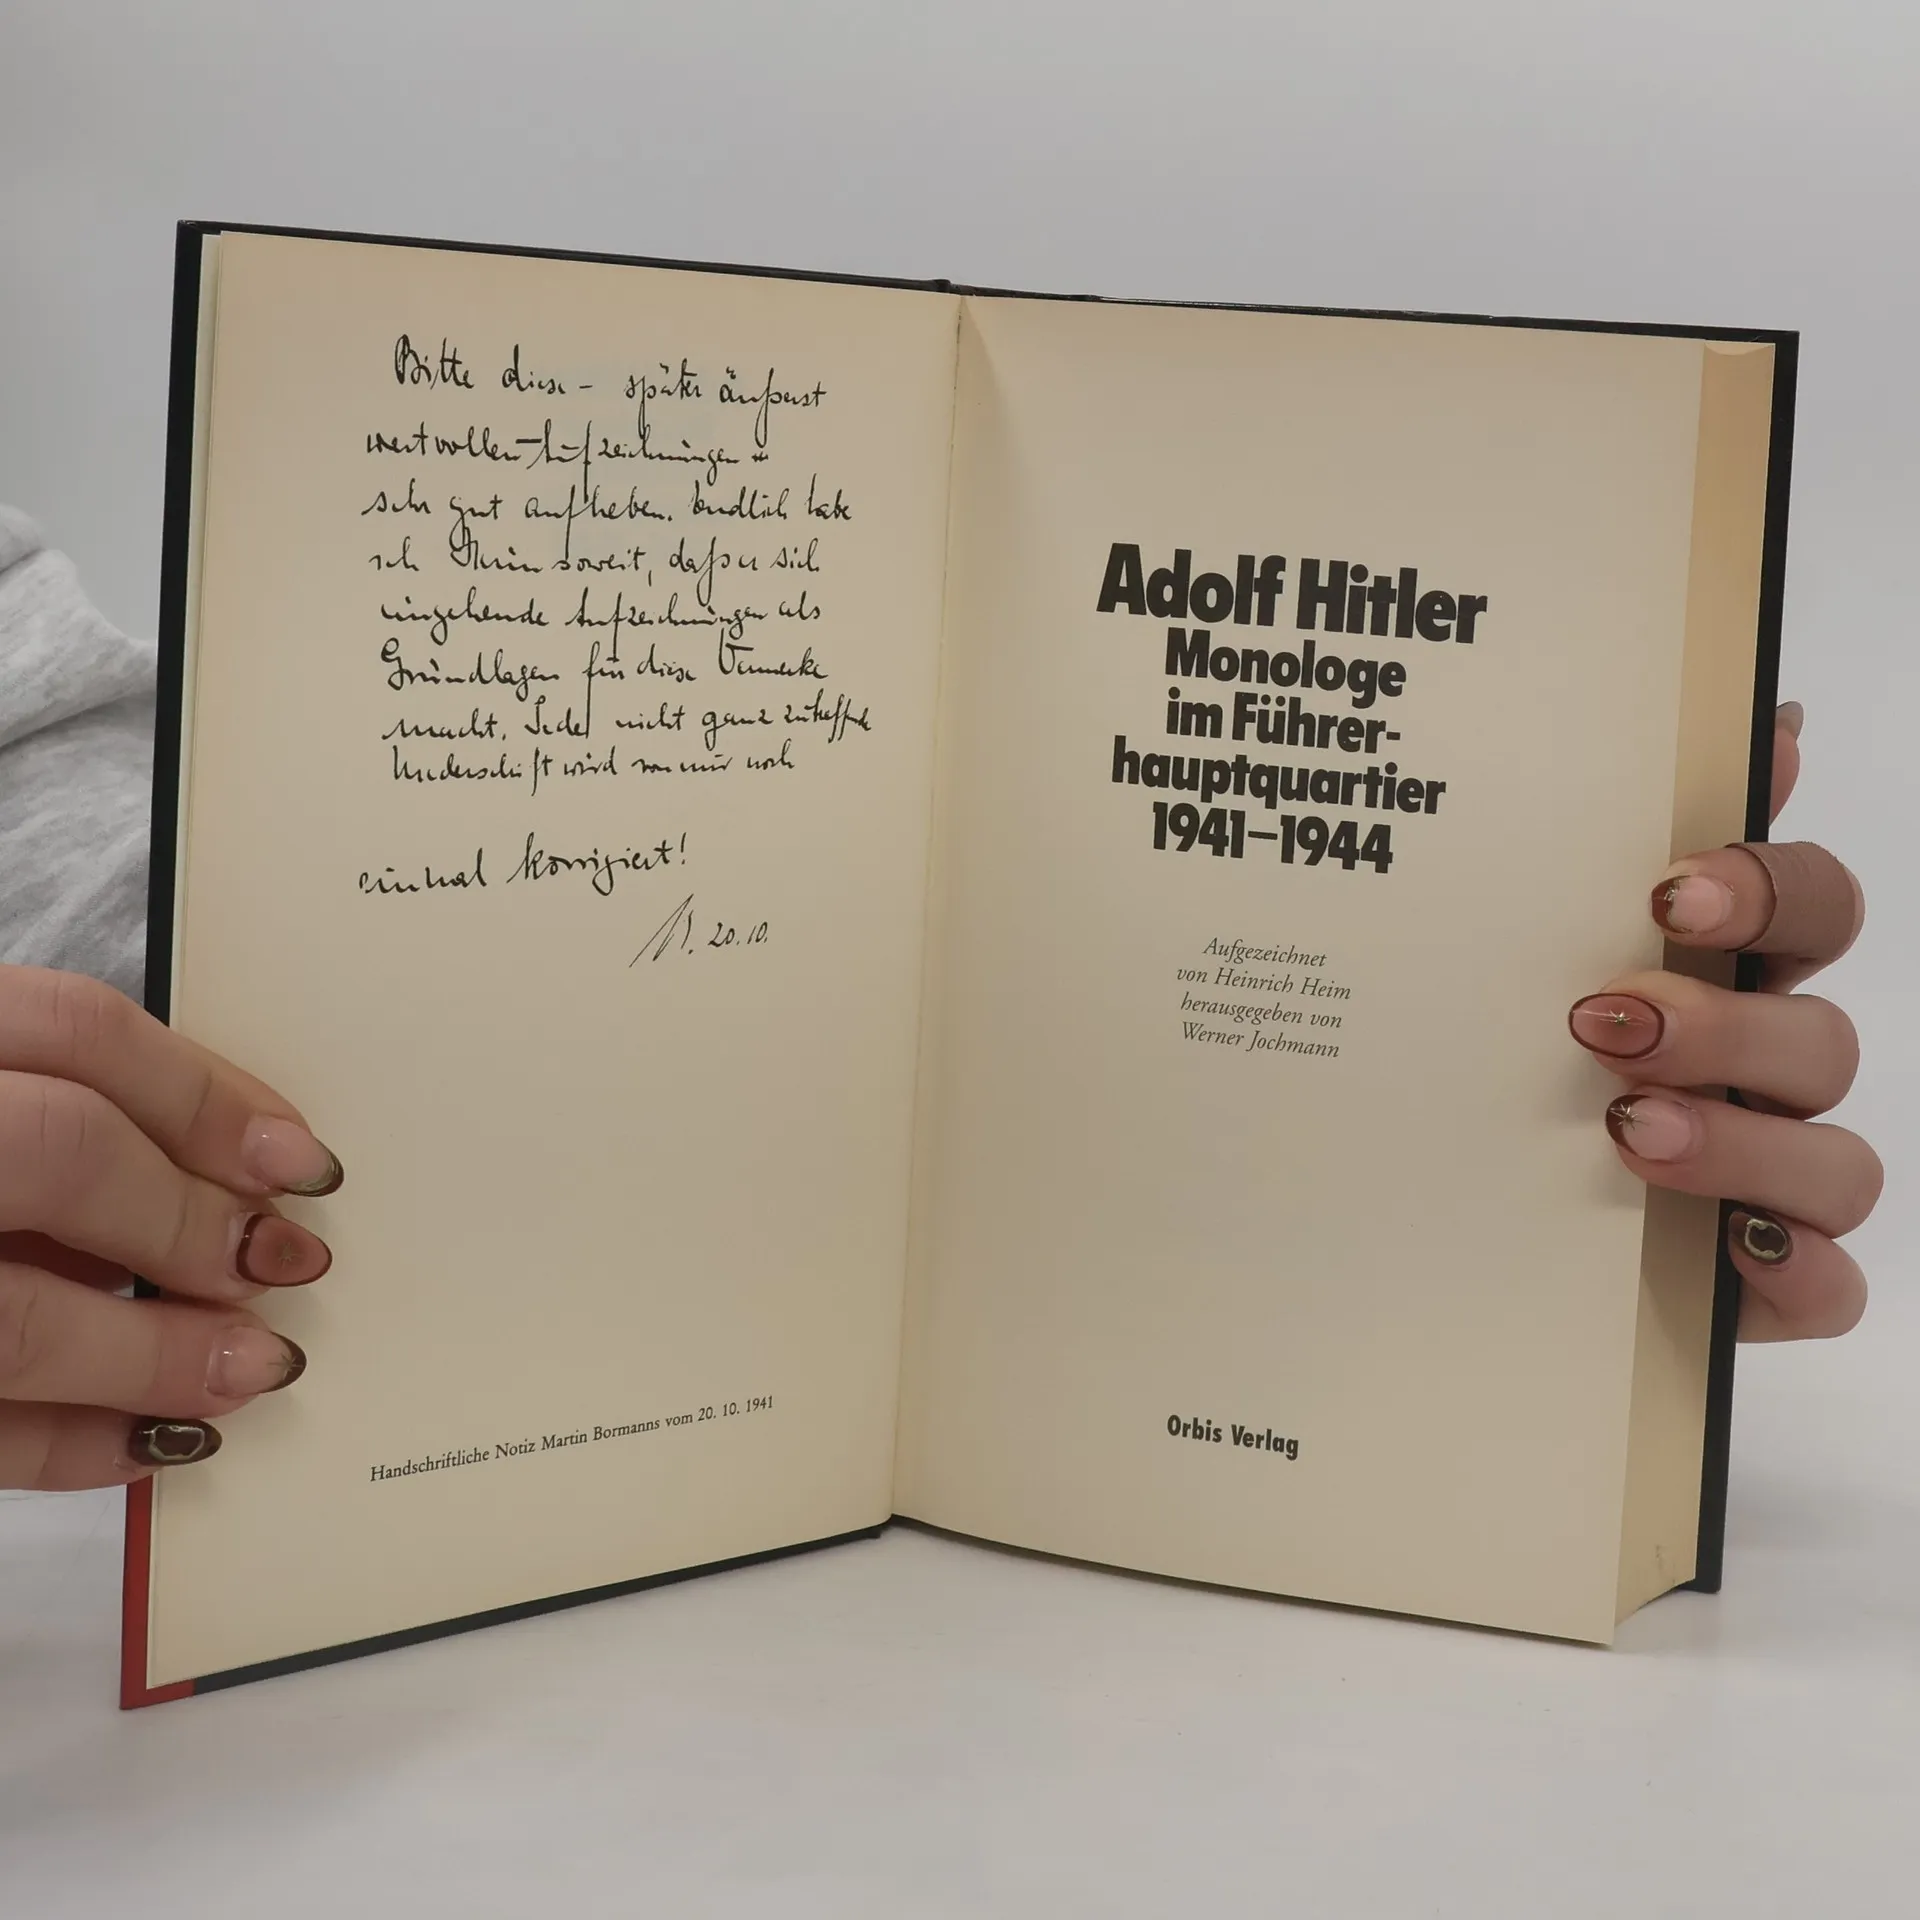 Bitte diese – später äußerst
wertvollen – Aufzeichnungen
sehr gut aufheben. Endlich habe
ich Heim soweit, daß er sich
eingehende Aufzeichnungen als
Grundlagen für diese Vermerke
macht. Jede nicht ganz zutreffende
Niederschrift wird von mir noch
einmal korrigiert!
B. 20.10.
Handschriftliche Notiz Martin Bormanns vom 20. 10. 1941
Adolf Hitler
Monologe
im Führer-
hauptquartier
1941–1944
Aufgezeichnet
von Heinrich Heim
herausgegeben von
Werner Jochmann
Orbis Verlag